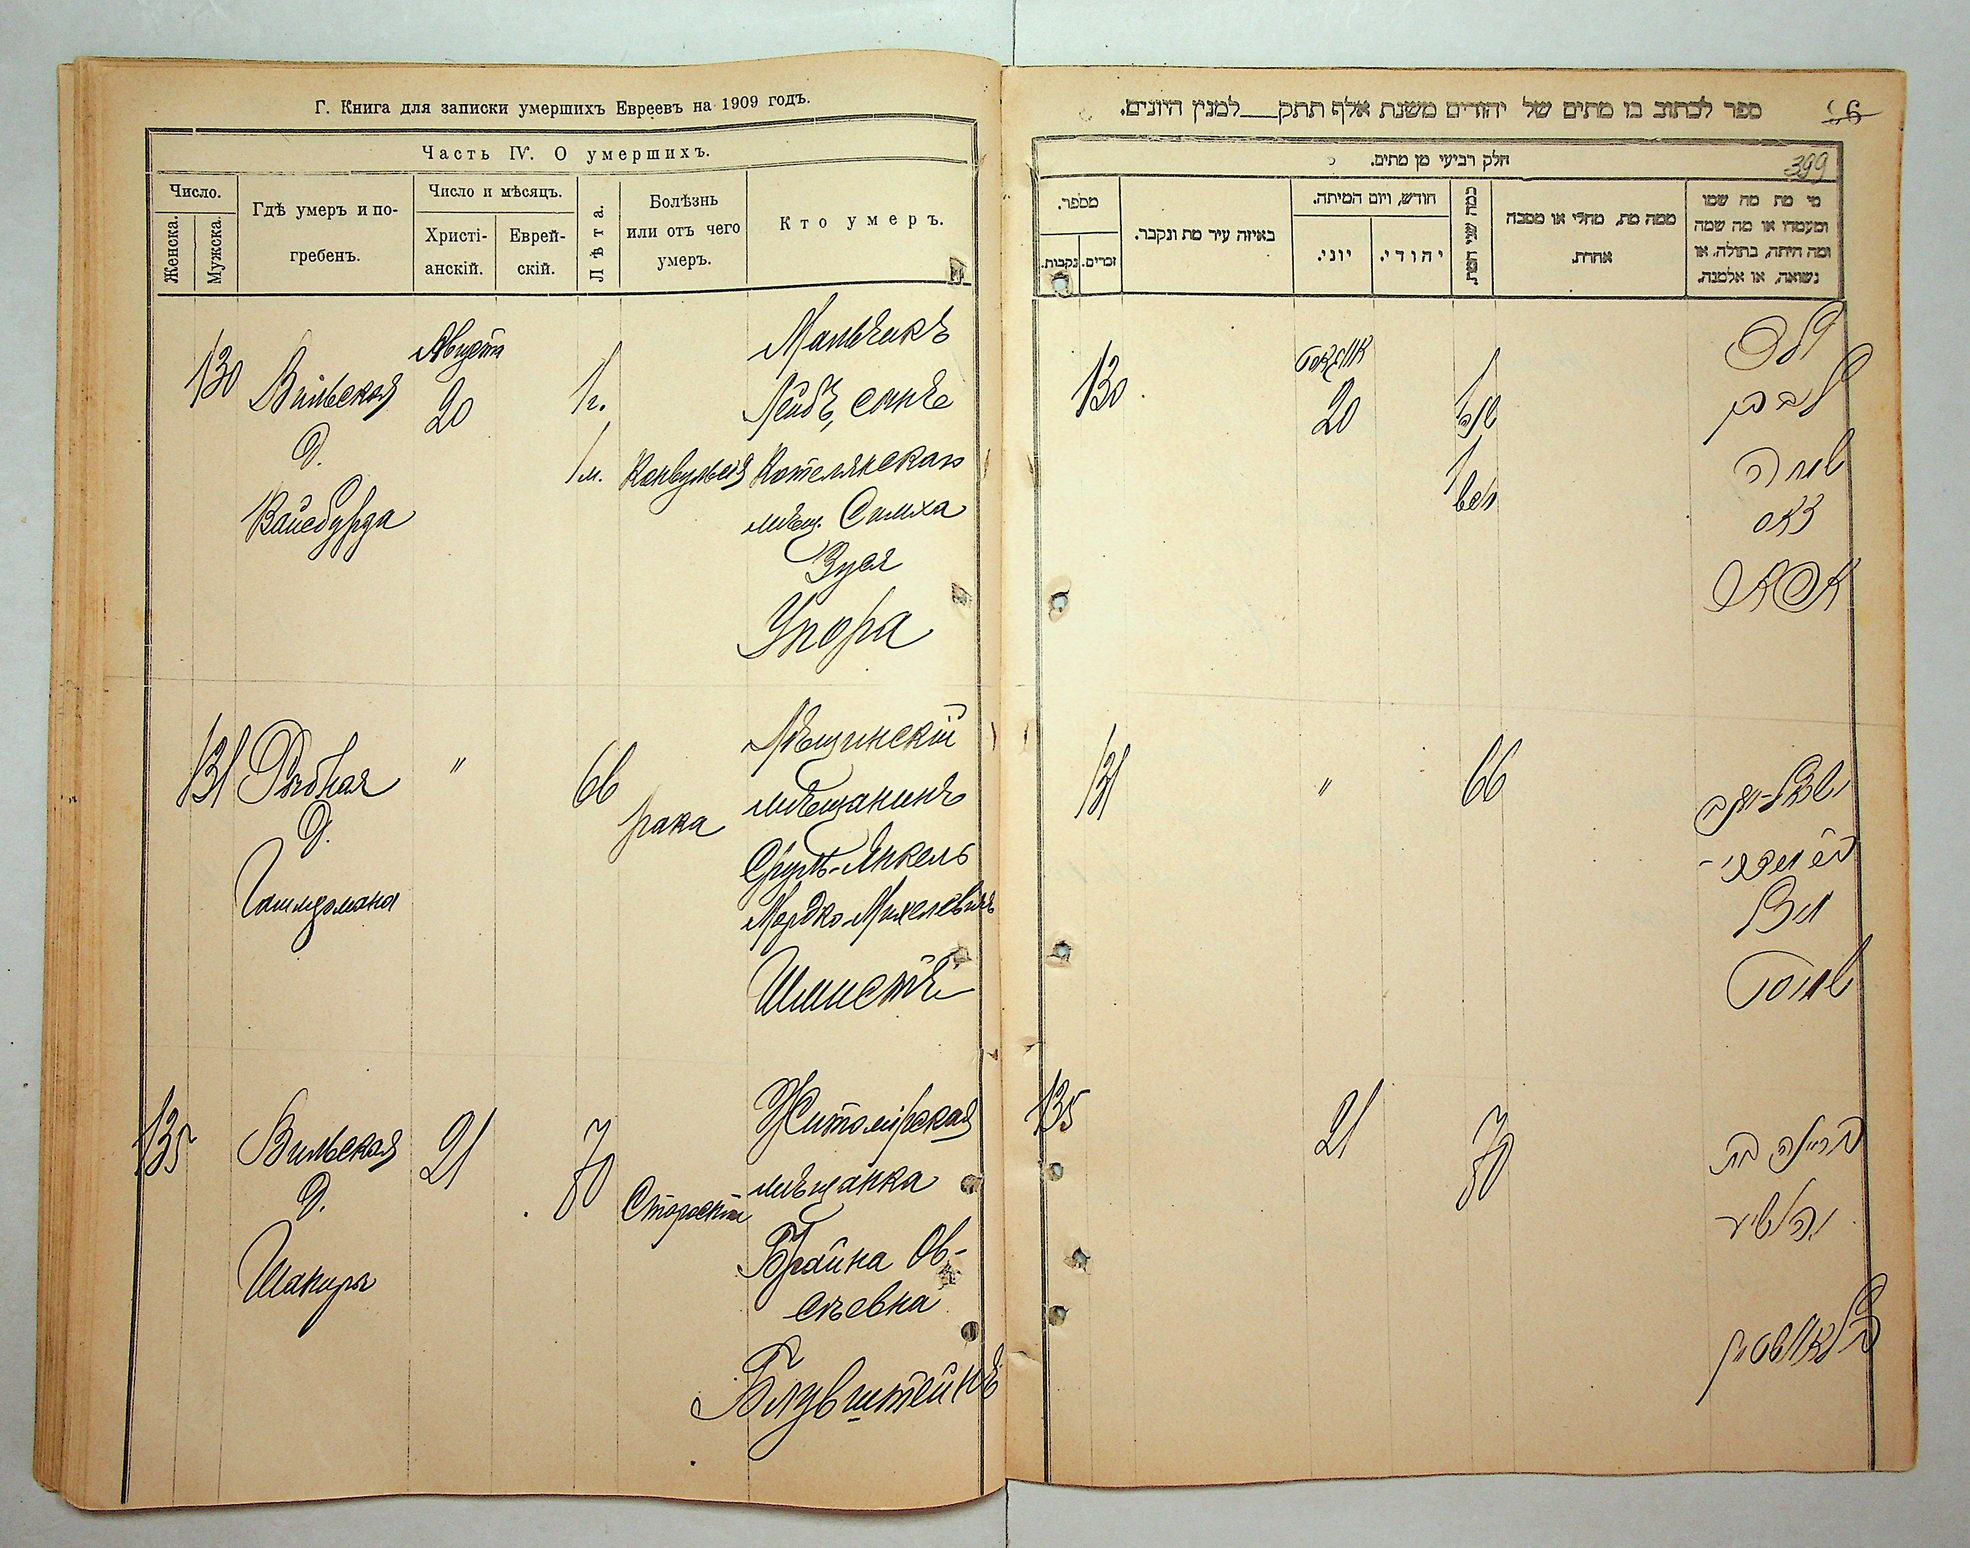 Г. Книга для записки умершихъ Евреевъ на 1909 годъ.
Часть IV. О умершихъ.
Число.
Женска.
Мужска.
Гдѣ умеръ и по-
гребенъ.
Число и мѣсяцъ.
Христі-
анскій.
Еврей-
скій.
Лѣта.
Болѣзнь
или отъ чего
умеръ.
Кто умеръ.
130
Вильская
д.
Вайсбурда
Августа
20
1 г.
1 м.
Конвульсія
Мальчикъ
Лейбъ, сынъ
Котелянскаго
мѣщ. Симха
Зуся
Упора
131
Рыбная
д.
"
66
рака
мѣщанинъ
Сруль-Янкель
Мордко-Михелевичъ
135
Вильская
д.
Шапиры
21
70
Старость
Житомірская
мѣщанка
Брайна Ов-
сѣевна
Блувштейнъ
ספר לכתוב בו מתים של יהודים משנת אלף תתק למנין היונים.
399
חלק רביעי מן מתים.
מספר.
נקבות.
זכרים.
באיזה עיר מת ונקבר.
חודש, ויום המיתה.
יוני.
יהודי.
כמה שני המת.
ממה מת, מחלי או מסבה
אחרת.
מי מת מה שמו
ומעמדו או מה שמה
ומה היתה, בתולה, או
נשואה, או אלמנה.
130
אווגוסט
20
1
שנה
1
ילד
ליב בן
שמחה
131
"
66
135
21
70
בריינה בת
יהושיע
בלאוושטיין